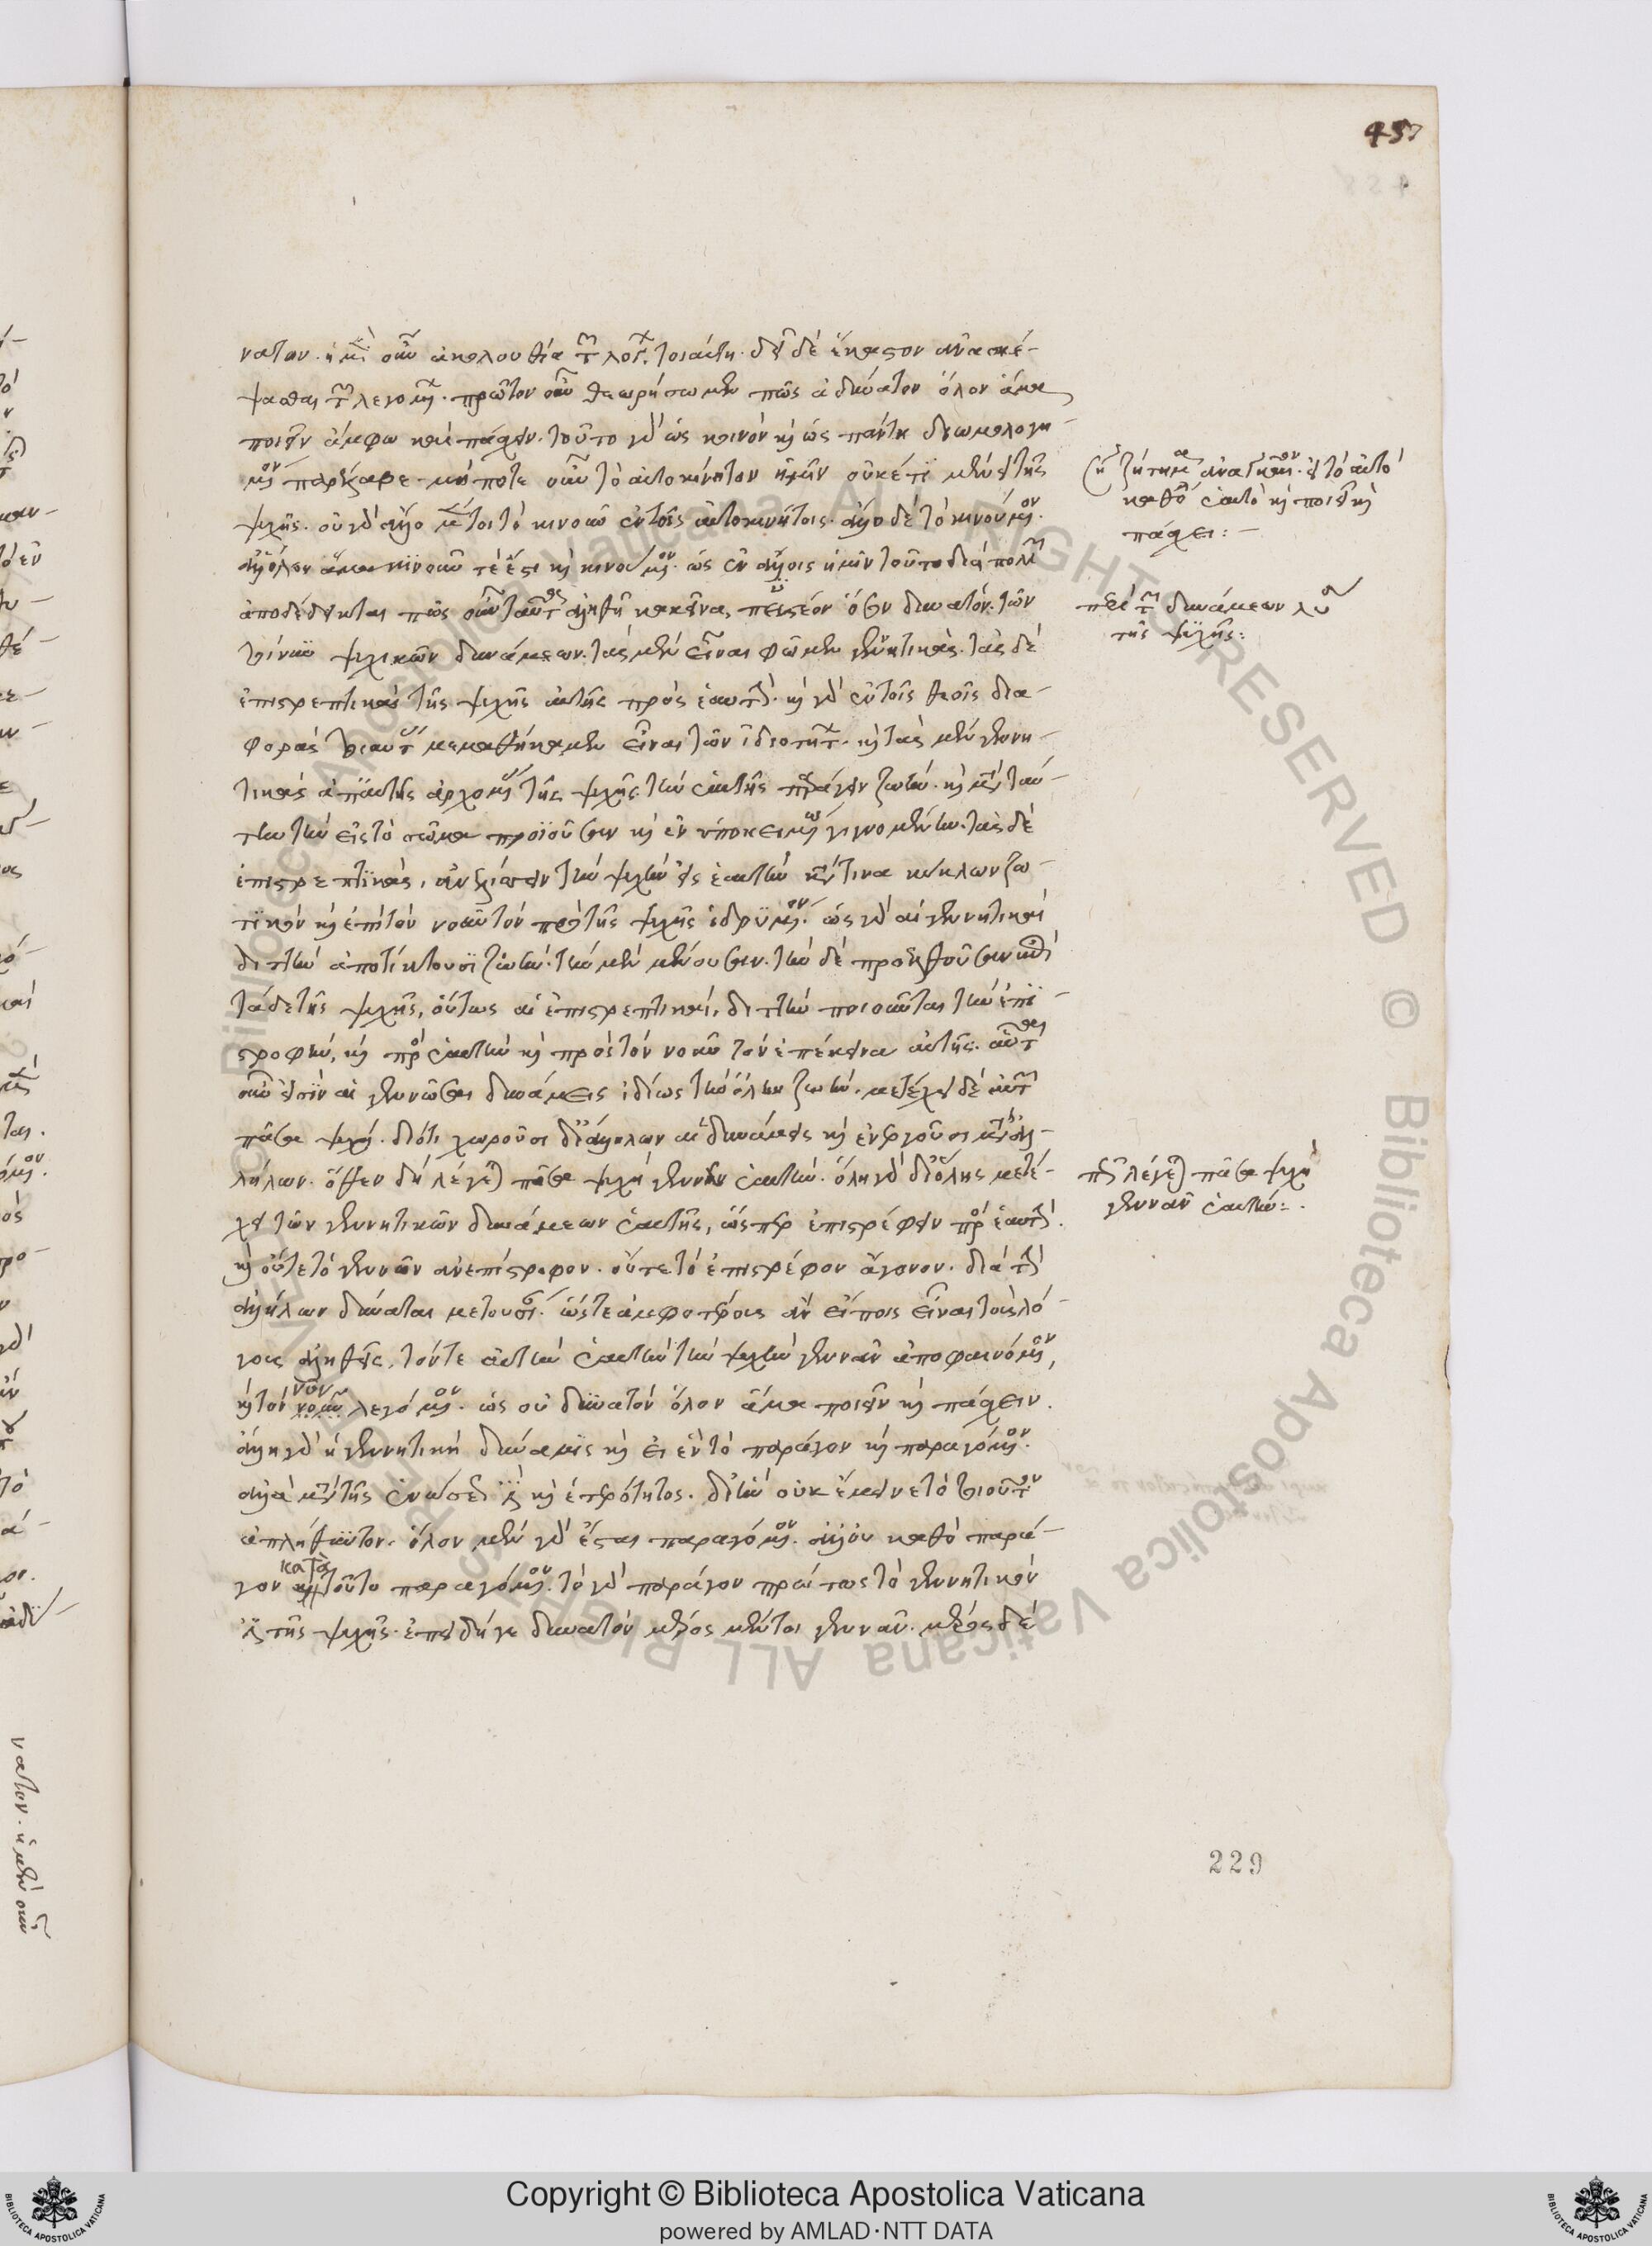 νατον. ἡ μὲν οὖν ἀκολουθία τῶν λόγων τοιαύτη. δεῖ δὲ ἕκαστον ἀνασκέ-
ψασθαι τῶν λεγομένων. πρῶτον οὖν θεωρήσωμεν πῶς ἀδύνατον ὅλον ἅμα
ποιεῖν ἄμφω καὶ πάσχειν. τοῦτο γὰρ ὡς κοινὸν καὶ ὡς πάντη διωμολογη-
μένον παρέλαβε. μήποτε οὖν τὸ αὐτοκίνητον ἡμῖν οὐκέτι μένει τῆς
ψυχῆς. οὐ γὰρ ἄλλο μέντοι τὸ κινοῦν ἐν τοῖς αὐτοκινήτοις. ἄλλο δὲ τὸ κινούμενον.
ἀλλ' ὅλον ἅμα κινοῦν τέ ἐστι καὶ κινούμενον. ὡς ἐν ἄλλοις ἡμῖν τοῦτο διὰ πολλῶν
ἀποδέδεικται πῶς οὖν ταῦτα ἀληθῆ κἀκεῖνα, πειστέον ὅσον δυνατόν. τῶν
τοίνυν ψυχικῶν δυνάμεων. τὰς μὲν εἶναι φῶμεν γεννητικάς. τὰς δὲ
ἐπιστρεπτικὰς τῆς ψυχῆς αὐτῆς πρὸς ἑαυτήν. καὶ γὰρ ἐν τοῖς θεοῖς δια-
φορὰς τοιαύτας μεμαθήκαμεν εἶναι τῶν ἰδιοτήτων. καὶ τὰς μὲν γεννη-
τικὰς ἀπ' αὐτῆς ἀρχομένας τῆς ψυχῆς τὴν ἑαυτῆς παράγειν ζωήν. καὶ μετὰ ταύ-
την τὴν εἰς τὸ σῶμα προϊοῦσαν καὶ ἐν ὑποκειμένῳ γινομένην. τὰς δὲ
ἐπιστρεπτικάς, συνελίσσειν τὴν ψυχὴν εἰς ἑαυτὴν κατά τινα κύκλον ζω-
τικὸν καὶ ἐπὶ τὸν νοῦν τὸν πρὸ τῆς ψυχῆς ἱδρυμένον. ὡς γὰρ αἱ γεννητικαὶ
διττὴν ἀποτίκτουσι ζωήν. τὴν μὲν μένουσαν. τὴν δὲ προελθοῦσαν κατὰ
τάδε τῆς ψυχῆς, οὕτως αἱ ἐπιστρεπτικαί, διττὴν ποιοῦνται τὴν ἐπι-
στροφήν, καὶ πρὸς ἑαυτὴν καὶ πρὸς τὸν νοῦν τὸν ἐπέκεινα αὐτῆς. αὗται
οὖν εἰσὶν αἱ γεννῶσαι δυνάμεις ἰδίως τὴν ὅλην ζωήν. μετέχει δὲ αὐτῶν
πᾶσα ψυχή. διότι χωροῦσι δι' ἀλλήλων αἱ δυνάμεις καὶ ἐνεργοῦσι μετ' ἀλ-
λήλων. ὅθεν δὴ λέγεται πᾶσα ψυχὴ γεννᾶν ἑαυτήν. ὅλη γὰρ δι' ὅλης μετέ-
χει τῶν γεννητικῶν δυνάμεων ἑαυτῆς, ὥσπερ ἐπιστρέφειν πρὸς ἑαυτήν.
καὶ οὔτε τὸ γεννῶν ἀνεπίστροφον. οὔτε τὸ ἐπιστρέφον ἄγονον. διὰ τὴν
ἀλλήλων δύναται μετουσίαν. ὥστε ἀμφοτέρους ἂν εἴποις εἶναι τοὺς λό-
γους ἀληθεῖς, τόν τε αὐτὴν ἑαυτὴν τὴν ψυχὴν γεννᾶν ἀποφαινόμενον,
καὶ τὸν νῦν λεγόμενον. ὡς οὐ δυνατὸν ὅλον ἅμα ποιεῖν καὶ πάσχειν.
ἄλλη γὰρ ἡ γεννητικὴ δύναμις καὶ εἰ ἓν τὸ παράγον καὶ παραγόμενον.
ἀλλὰ μετὰ τῆς ἑνώσεώς ἐστι καὶ ἑτερότητος. δι' ἣν οὐκ ἔμεινε τὸ τοιοῦτον
ἀπλήθυντον. ὅλον μὲν γὰρ ἔσται παραγόμενον. ἀλλ' οὐ καθὸ παρά-
γον κατὰ τοῦτο παραγόμενον. τὸ γὰρ παράγον πρώτως τὸ γεννητικόν
ἐστι τῆς ψυχῆς. ἐπειδὴ γε δυνατὸν μέρος μέν τοι γεννᾶν. μέρος δὲ
ζήτημα ἀναγκαῖον. εἰ τὸ αὐτὸ
καθὸ ἑαυτὸ καὶ ποιεῖ καὶ
πάσχει:-
περὶ τῶν δυνάμεων
τῆς ψυχῆς:
πῶς λέγεται πᾶσα ψυχὴ
γεννᾶν ἑαυτήν:.
457
229
νατον. ἡ μὲν οὖν
Copyright © Biblioteca Apostolica Vaticana
powered by AMLAD·NTT DATA